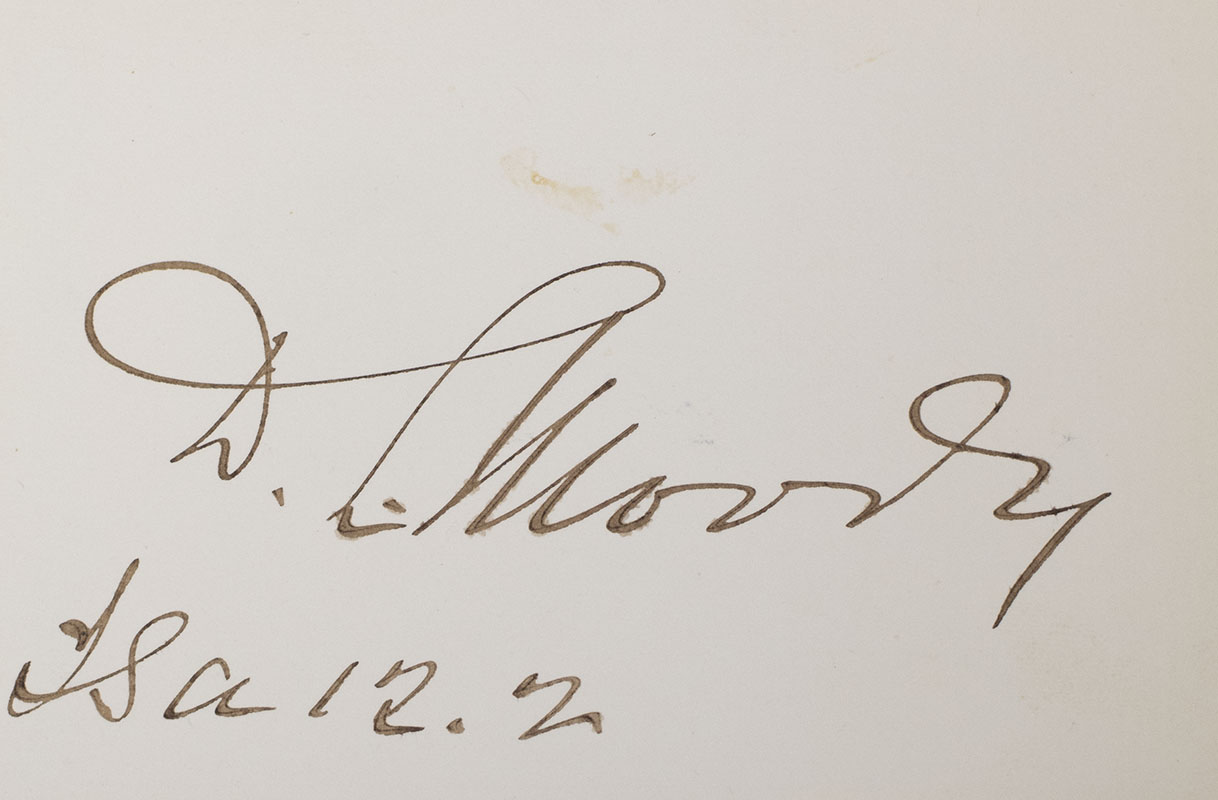 D. L. Moody
Isa 12. 2